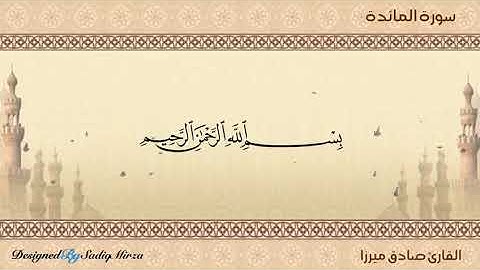 سورة المائدة
بِسْمِ ٱللَّهِ ٱلرَّحْمَٰنِ ٱلرَّحِيمِ
DesignedBySadiqMirza
القارئ صادق ميرزا